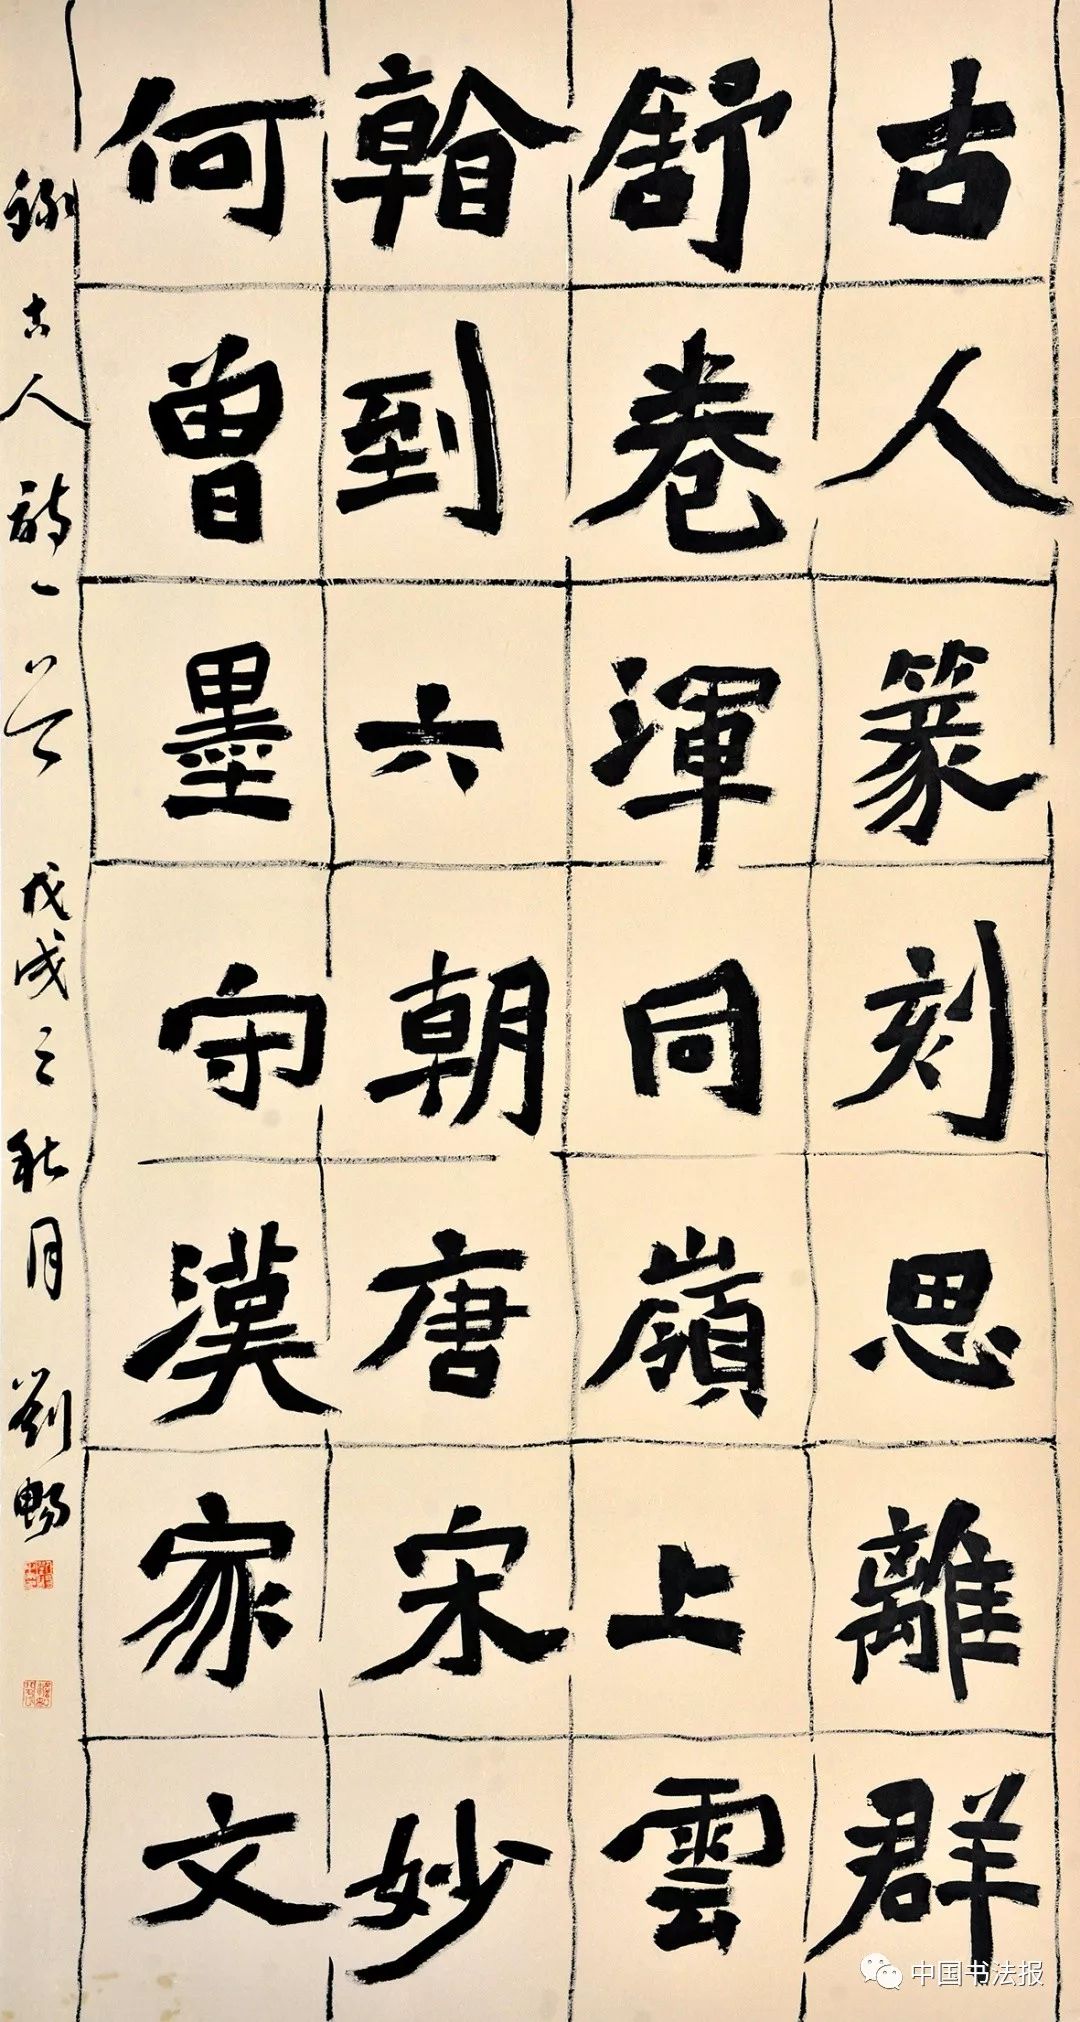 古人篆刻思離群
舒卷渾同嶺上雲
看到六朝唐宋妙
何曾墨守漢家文
錄古人詩一首 戊戌之秋月 劉暢
中国书法报